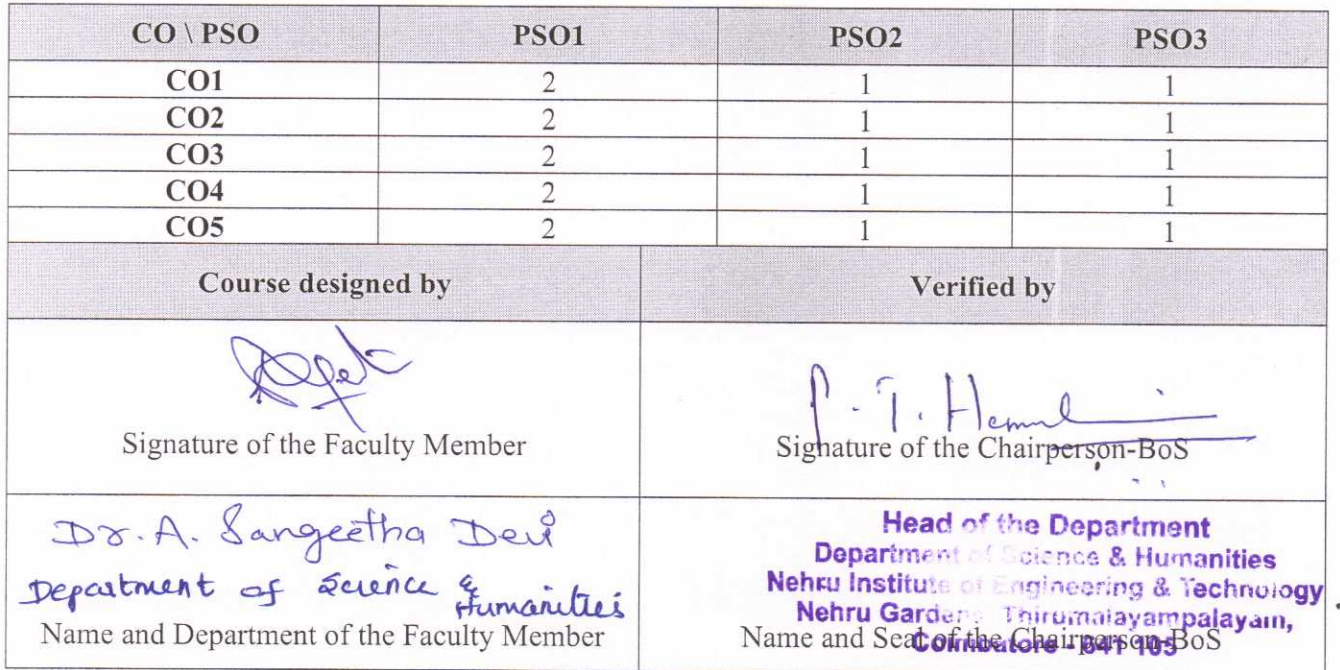 CO \ PSO PSO1 PSO2 PSO3
CO1 2 1 1
CO2 2 1 1
CO3 2 1 1
CO4 2 1 1
CO5 2 1 1
Course designed by Verified by
Signature of the Faculty Member
P. T. Signature of the Chairperson-BoS
Dr. A. Sangeetha Devi
Department of Science &
Humanities
Name and Department of the Faculty Member
Head of the Department
Department of Science & Humanities
Nehru Institute of Engineering & Technology
Nehru Gardens Thirumalayampalayam,
Coimbatore - 641 105
Name and Seal of the Chairperson-BoS